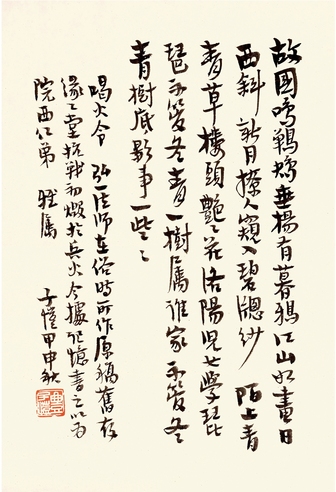 故國鳴鶗鴂垂楊有暮鴉江山如畫日
西斜 新月撩人窺入碧牕紗 陌上青
青草樓頭艷〻花洛陽兒女學琵
琶不管冬青一樹屬誰家不管冬
青樹底影事一些〻
喝火令 弘一法師在俗時所作原稿舊存
緣〻堂抗戰初燬於兵火今據記憶書之以為
院西仁弟 雅屬
子愷甲申秋